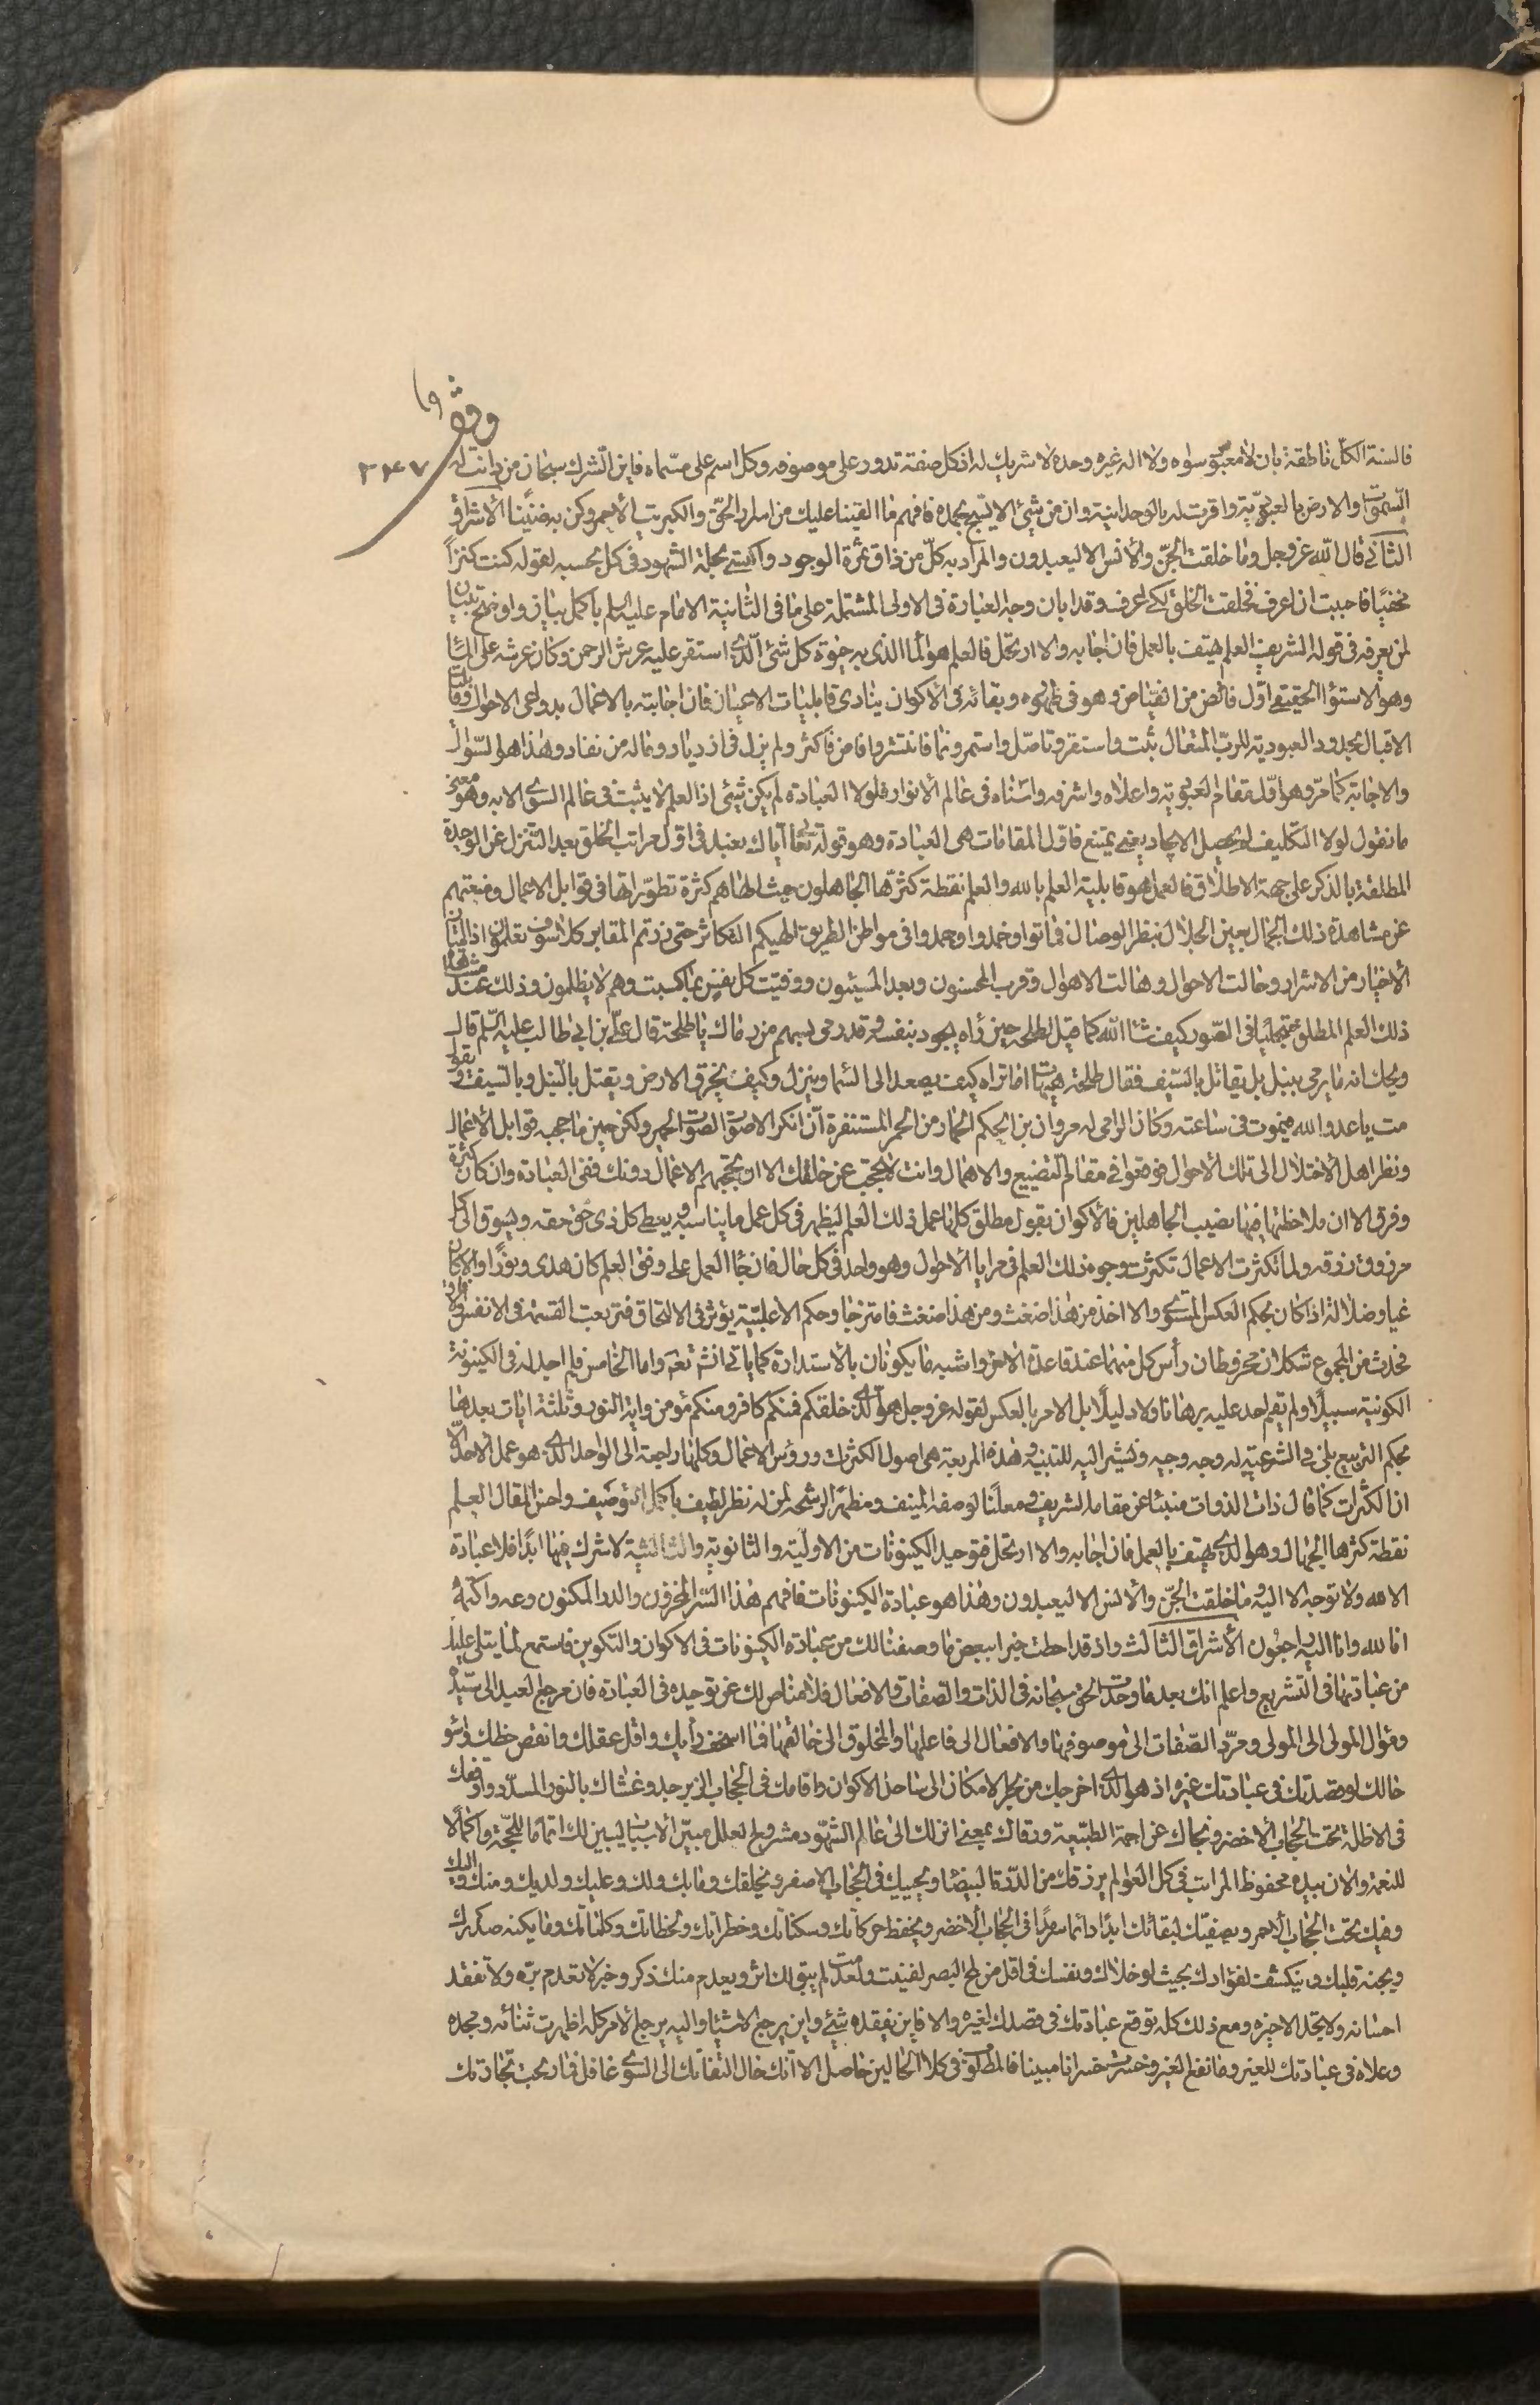 وقف
٢٤٧
فالسنة الكلّ ناطقة بان لا معبود سواه ولا اله غيره وحده لا شريك له اذ كل صفة تدور على موصوفه وكل اسم على مسّماه فاين الشرك سبحان من دانت له
السّموات والارض بالعبوديّة واقرت له بالوحدانية وان من شيئ الا يسّبح بحمده فافهم ما القينا عليك من اسرار الحقّ والكبريت الأحمر وكن به ضنّينا الأشراق
الثاني قال الله عز وجل وما خلقت الجنّ والأنس الا ليعبدون والمراد به كلّ من ذاق ثمرة الوجود واكتسى بحلة الشهود في كل بحسبه لقوله كنت كنزاً
مخفيّا فاحببت ان اعرف فخلقت الخلق لكي اعرف وقد ابان وجه العبادة في الاولى المشتملة على ما في الثانية الامام عليه السلم باكمل بيان واوضح تبيان
لمن يعرفه في قوله الشريف العلم يهتف بالعمل فان اجابه والا ارتحل فالعلم هو الماء الذي به حيوة كل شئ الّذي استقر عليه عرش الرحمن وكان عرشه على الماء
وهو الاستواء الحقيقي اوّل فائض من الفيّاض وهو في ظهوره وبقائه في الأكوان ينادي قابليات الاعيان فان اجابته بالاعمال بدواعي الاحوال وقابلتها
الاقبال بحدود العبودية للربّ المتعال ثبت واستقر وتاصّل واستمر ونما فانتشر وافاض فاكثر ولم يزل في ازدياد وماله من نفاد وهذا هو السّوال
والاجابة كما مرّ وهو اوّل مقام العبوديّة واعلاه واشرفه واسناه في عالم الأنوار فلولا العبادة لم يكن شئي اذ العلم لا يثبت في عالم السوى الا به وهو معنى
ما نقول لولا التكليف لم يحصل الايجاد يعني يمتنع فاول المقامات هي العبادة وهو قوله تعالى اياك نعبد في اوّل مراتب الخلق بعد التنزل عن الوحدة
المطلقة بالذكر على جهة الاطلاق فالعمل هو قابلية العلم بالله والعلم نقطة كثرّها الجاهلون حيث الهاهم كثرة تطوّراتها في قوابل الاعمال ومنعتهم
عن مشاهدة ذلك الجمال بعين الجلال بنظر الوصال فماتوا وخمدوا وجمدوا في مواطن الطريق الهيكم التكاثر حتى زرتم المقابر كلا سوف تعلمون اذا امتاز
الأخيار من الاشرار وحالت الاحوال وهالت الاهوال وقرب المحسنون وبعد المسيئون ووفيت كل نفس بما كسبت وهم لا يظلمون وذلك عند مشاهدة
ذلك العلم المطلق متجليّا في الصّور كيف شاء الله كما قيل لطلحه حين راه يجود بنفسه وقد رمي بسهم من رماك يا طلحة قال عليّ بن ابي طالب عليه السّلم قال
ويحك انه ما يرمي بنبل بل يقاتل بالسّيف فقال طلحة هيهات اما تراه كيف يصعد الى السّماء وينزل وكيف يخرق الارض ويقتل بالنبل وبالسيف ويقول
مت يا عدو الله فيموت في ساعته وكان الرامي له مروان بن الحكم الحمار من الحمر المستنفرة انّ انكر الاصوات لصوت الحمير ولكن حين ما حجبه قوابل الأعمال
ونظر اهل الأختلال الى تلك الأحوال فوقعوا في مقام التضييع والاهمال وانت لا تحتجب عن خلقك الا ان تحجبهم الاعمال دونك ففي العبادة وان كان كثرة
وفرق الا ان ملاحظتها فيها نصيب الجاهلين فالأكوان بقول مطلق كلها عمل ذلك العلم ليظهر في كل عمل ما يناسبه ويعطي كل ذي حق حقه ويسوق الى كل
مرزوق رزقه ولما تكثرت الاعمال تكثرت وجوه ذلك العلم في مرايا الأحوال وهو واحد في كل حال فان جاء العمل على وفق العلم كان هدى ونورًا والا كان
غيا وضلالة اذا كان بحكم العكس المستوي والا اخذ من هذا ضغث ومن هذا ضغث فامتزجا وحكم الاغلبيّة يؤثر في الالتحاق فتربعت القسمة في الانفس
فحدث من المجموع شكلان مخروطان رأس كل منهما عند قاعدة الاخر واشبه ما يكونان بالأستدارة كما ياتي انشم تعم واما الخامس فلم احد له في الكينونة
الكونية سبيلًا ولم يقم احد عليه برهانا ولا دليلًا بل الامر بالعكس لقوله عز وجل هو الذي خلقكم فمنكم كافر ومنكم مؤمن واية النور وثلثة ايات بعدها
بحكم التربيع بلى في الشرعية له وجه وجيه ونشير اليه للتنبيه وهذه المربعة هي اصول الكثرات ورؤس الاعمال وكلها راجعة الى الواحد الذي هو عمل الاحد الّا
ان الكثرات كما قال ذات الذوات منبئا عن مقامه الشريف ومعلنًا لوصفه المنيف ومظهّر الرشحه لمن له نظر لطيف باكمل التوصيف واحسن المقال العلم
نقطة كثرها الجهال وهو الذي يهتف بالعمل فان اجابه والا ارتحل فتوحيد الكينونات من الاوليّة والثانوية والثالثية لا شرك فيها ابدًا فلا عبادة
الا لله ولا توجه الا اليه وما خلقت الجنّ والأنس الا ليعبدون وهذا هو عبادة الكينونات فافهم هذا السّر المخزون والدر المكنون وعه واكتمه
انا لله وانا اليه راجعون الأشراق الثالث واذ قد احطت خبرا ببعض ما وصفنا لك من عبادة الكينونات في الاكوان والتكوين فاستمع لما يتلى عليك
من عبادتها في التشريع واعلم انك بعد ما وحّدت الحق سبحانه في الذات والصّفات والافعال فلا مناص لك عن توحيده في العبادة فان مرجع العبيد الى سيّد
ومؤل المولى الى المولى ومردّ الصّفات الى موصوفها والافعال الى فاعلها والمخلوق الى خالقها فما اسخف رأيك واقل عقلك وانقص حظك واسوء
حالك لو قصدت في عبادتك غيره اذ هو الذي اخرجك من بحر الامكان الى ساحل الاكوان واقامك في الحجاب الزبرجد وغشاك بالنور المسدّد واوقفك
في الاظلة تحت الحجاب الأخضر ونجاك عن اجمة الطبّيعة ورقاك بمعنى انزلك الى عالم الشّهود مشروح العلل مبيّن الأسباب ليبين لك اتماما للحّجة واكمالًا
للنعمة والان بيده محفوظ المراتب في كل العوالم يرزقك من الدّرة البيضاء ويحييك في الحجاب الاصفر ويخلقك وما بك ولك وعليك ولديك ومنك واليك
وفيك تحت الحجاب الأحمر ويصفيك لبقائك ابدًا دائما سرمدًا في الحجاب الأخضر ويحفظ حركاتك وسكناتك وخطراتك ولحظاتك وكلماتك وما يكنه صدرك
ويجنه قلبك وينكشف لفؤادك بحيث لو خلاك ونفسك في اقل من لمح البصر لفنيت ولعدمت لم يبق لك اثر ويعدم منك ذكر وخبر لا تعدم برّه ولا تفقد
احسانه ولا تجد الا خيره ومع ذلك كله توقع عبادتك في قصدك لغيره والا فاين يفقده شئي واين يرجع الاشيا واليه يرجع الأمر كله اظهرت ثنائه ومجده
وعلاه في عبادتك للغير وما نفع الغير وخسرت خسرانا مبينا فالمطلوب في كلا الحالين حاصل الا انك حال التفاتك الى السوى غافل فما ربحت تجارتك